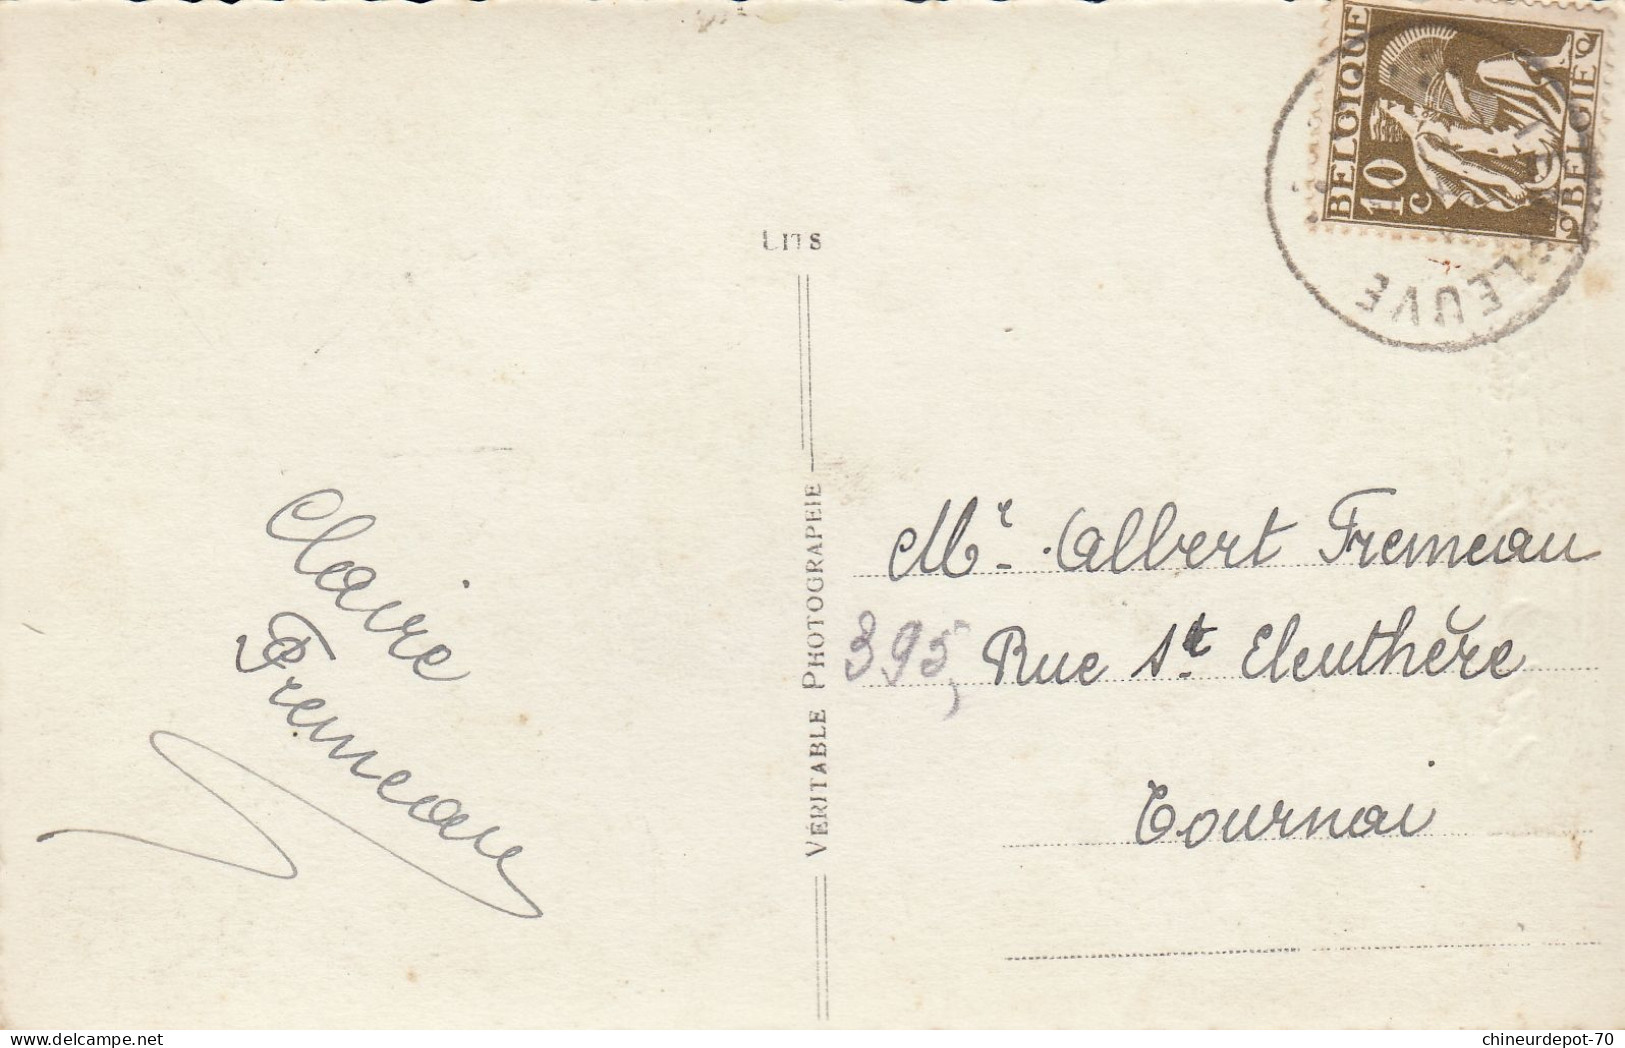 BELGIQUE
10 c
BELGIE
LEUVE
LITS
VÉRITABLE PHOTOGRAPHIE
Claire
Fremeau
Mr. Albert Fremeau
395, Rue St. Eleuthère
Tournai
chineurdepot-70